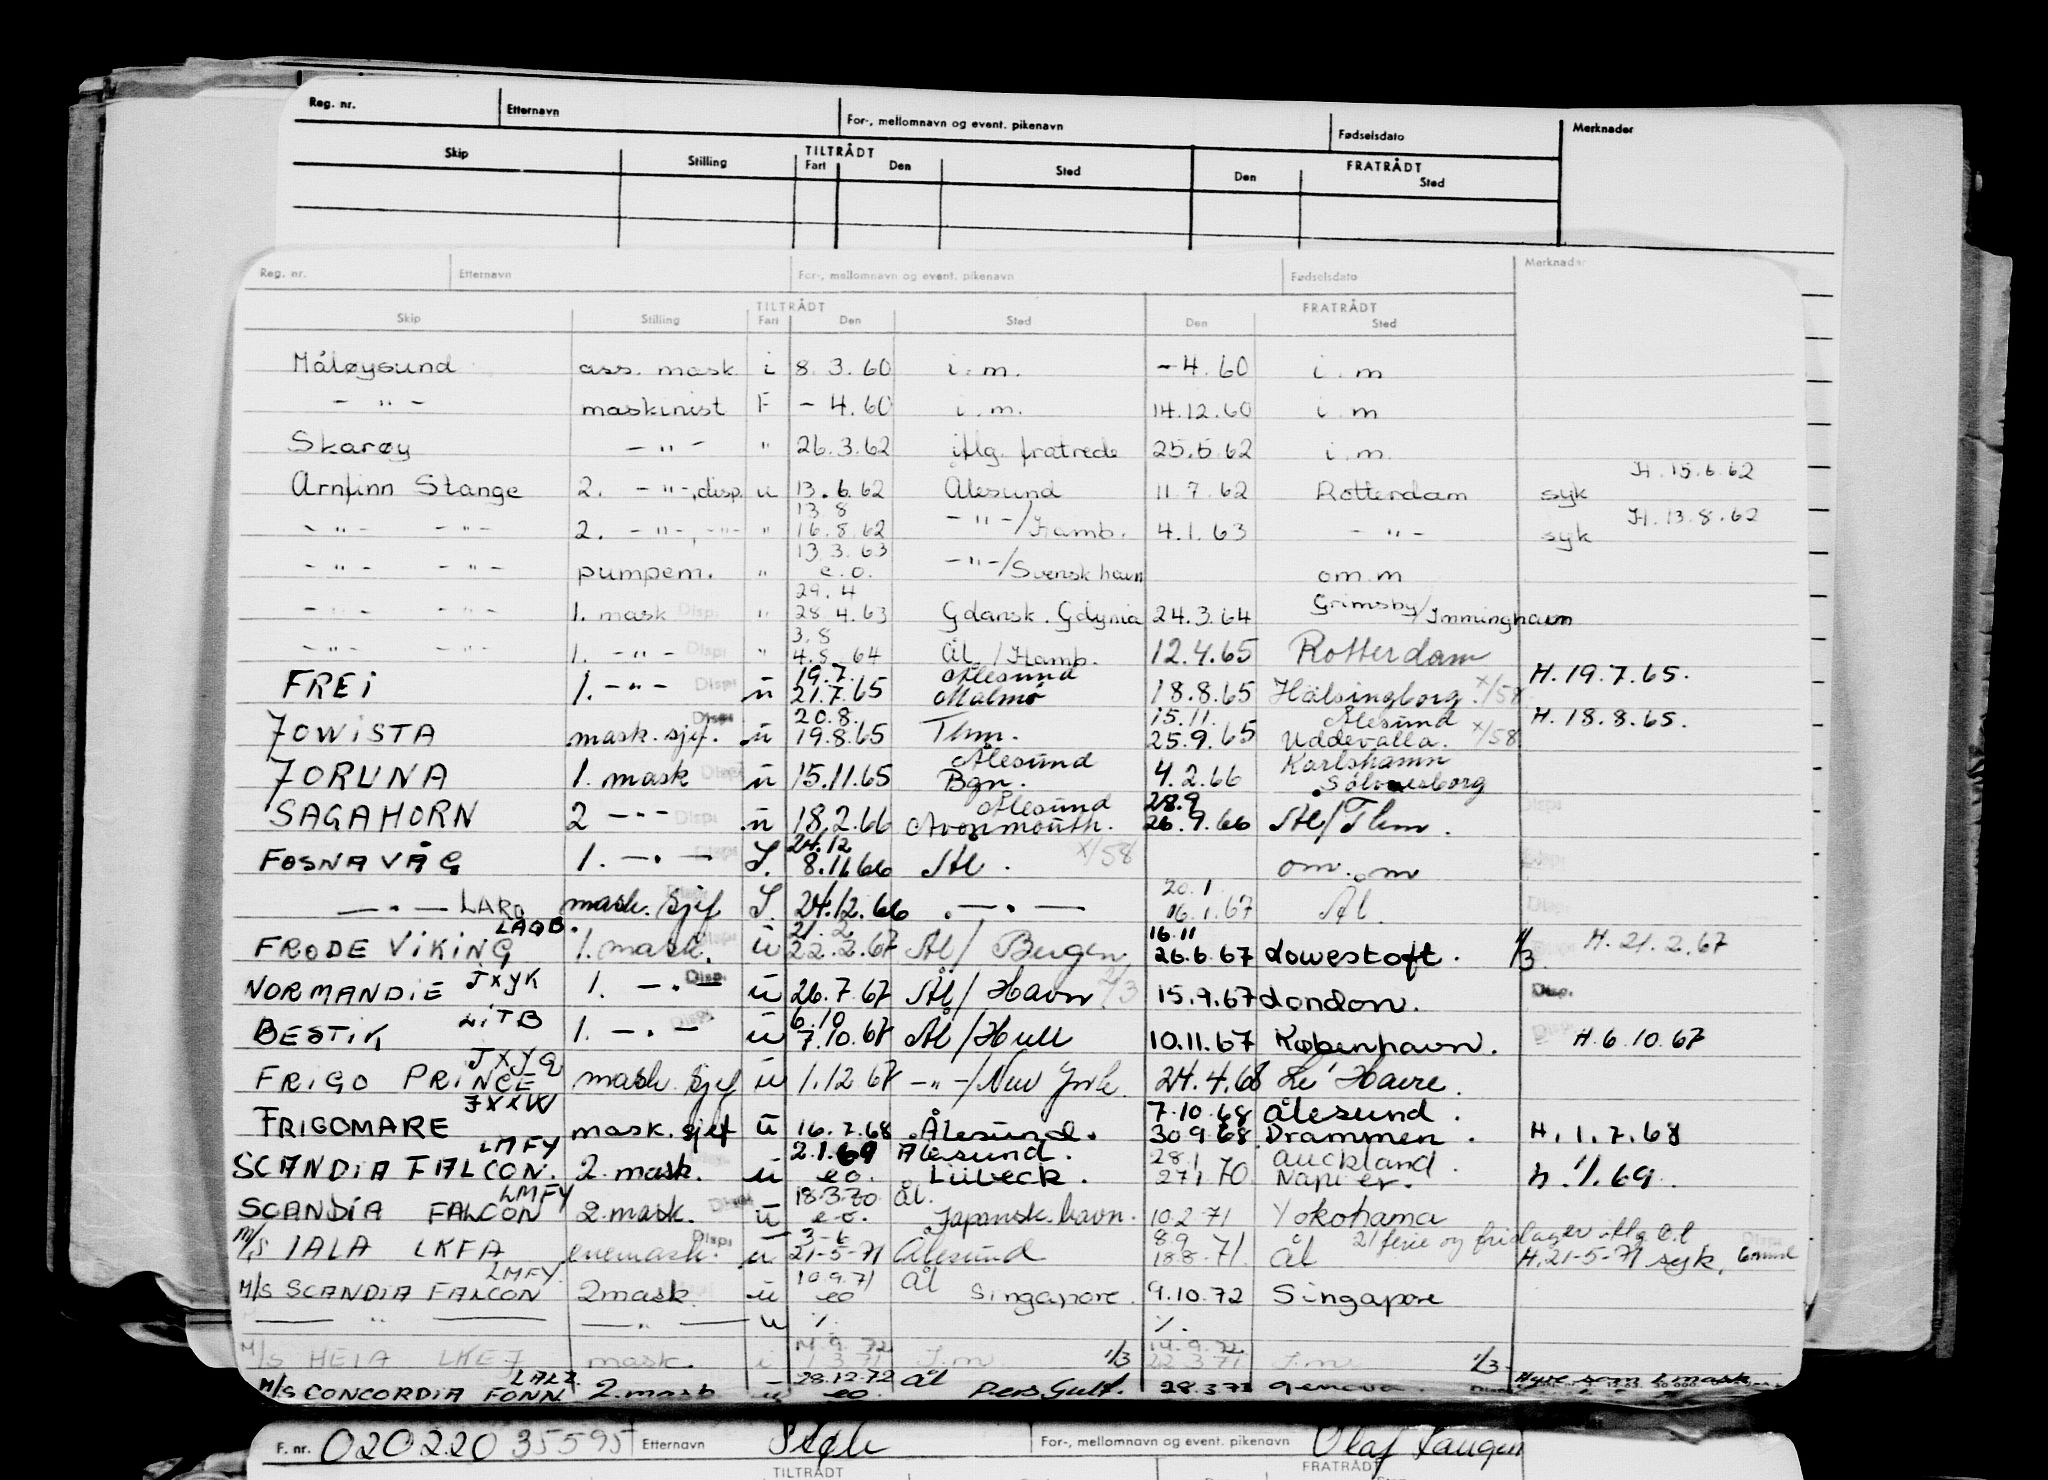 Reg. nr. Etternavn For-, mellomnavn og event. pikenavn Fødselsdato Merknader
Skip Stilling TILTRÅDT Fart Den Sted FRATRÅDT Den Sted
Reg. nr. Etternavn For-, mellomnavn og event. pikenavn Fødselsdato Merknader
Skip Stilling TILTRÅDT Fart Den Sted FRATRÅDT Den Sted
Måløysund ass. mask i 8.3.60 i.m. -4.60 i.m
- " - maskinist F - 4.60 i.m. 14.12.60 i.m
Skarøy - " - " 26.3.62 iflg. fratrede 25.5.62 i.m.
H. 15.6.62
Arnfinn Stange 2. - " -, disp. u 13.6.62 Ålesund 11.7.62 Rotterdam syk
13 8 H. 13.8.62
- " - - " - 2. - " -, - " - " 16.8.62 - " - /Hamb. 4.1.63 - " - syk
13.3.63
- " - - " - pumpem. " e.o. - " - /Svensk havn om m
29.4
- " - - " - 1. mask Disp. " 28 4.63 Gdansk. Gdynia 24.3.64 Grimsby/Immingham
3.8
- " - - " - 1. - " - Disp. " 4.8 64 Ål./Hamb. 12.4.65 Rotterdam
19.7. Ålesund H. 19.7.65.
FREI 1. - " - Disp. u 21.7.65 Malmö 18.8.65 Hälsingborg. x/58
20.8. 15.11. Ålesund H. 18.8.65.
JOWISTA mask. sjef. u 19.8.65 Thm. 25.9.65 Uddevalla. x/58
Ålesund Karlshamn
JORUNA 1. mask Disp. u 15.11.65 Bgn. 4.2.66 Sölvesborg
Ålesund 28.9
SAGAHORN 2 - " - Disp. u 18.2.66 Avonmouth. 26.9.66 Ål/Thm.
24.12
FOSNAVÅG 1. - " - S. 8.11.66 Ål. x/58 om. m
20.1
- " - LARO mask. sjef S. 24.12.66 - " - 16.1.67 Ål.
LAQB. 21.2 16.11
FRODE VIKING 1. mask. u 22.2.67 Ål/ Bergen 26.6.67 Lowestoft. 1/3. H. 21.2.67
NORMANDIE JXYK 1. - " - Disp. u 26.7.67 Ål/ Havn 2/3 15.9.67 London. Disp.
LITB 6.10
BESTIK 1. - " - Disp. u 7.10.67 Ål/Hull 10.11.67 København. H. 6.10.67
JXYQ
FRIGO PRINCE mask. sjef u 1.12.67 - " - /New York 24.4.68 Le Havre.
JXXW 7.10.68 Ålesund.
FRIGOMARE mask. sjef u 16.7.68 Ålesund. 30.9.68 Drammen. H. 1.7.68
LMFY 2.1.69 Ålesund. 28.1 Auckland.
SCANDIA FALCON. 2. mask. u eo. Lübeck. 27.1 70 Napier. h. 1/1.69.
LMFY 18.3.70 Ål.
SCANDIA FALCON 2. mask. u e-o. Japansk havn. 10.2.71 Yokohama
3-6 8.9 21 ferie og fridager iflg. o.l.
M/S IALA LKFA enemask. Disp. u 21-5-71 Ålesund 18.8.71. Ål H. 21-5-71 syk.
LMFY. 10.9.71 Ål
M/S SCANDIA FALCON 2 mask. u eo Singapore. 9.10.72 Singapore
- " - - " - u %. %.
14.9.72 14.9.72.
M/S HEIA LKEJ mask. i 1.3.71 I.m 1/3 22.3.71 I.m. 1/3
LALZ. 28.12.72 Ål
M/S CONCORDIA FONN 2. mask u eo. Pers. Gulf. 28.3.73 Genova. Hyre som 1. mask
F. nr. 020220 35595 Etternavn Støle For-, mellomnavn og event. pikenavn Olaf Saugen
TILTRÅDT FRATRÅDT